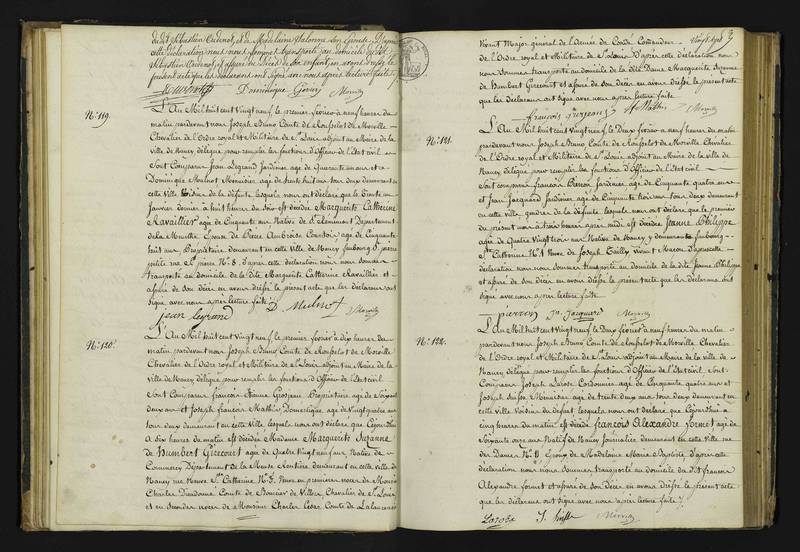 cette déclaration nous nous sommes transporté au domicile du dit
Sébastien Oudenot, et assuré du décès de
présent acte que les déclarans ont signé avec nous après lecture faite
Dominique
N.º 119.
L'An Mil huit cent Vingt neuf le premier février à neuf heures du
matin pardevant nous Joseph Bruno Comte de Rousselot de Morville
Chevalier de l'Ordre royal et Militaire de St. Louis adjoint au Maire de la
Ville de Nancy délégué pour remplir les fonctions d'Officier de l'Etat civil
Sont Comparus Jean Legrand Jardinier agé de Quarante un ans et
Dominique Mulnot Menuisier agé de trente huit ans tous deux demeurant
en cette Ville Voisins de la défunte lesquels nous ont déclaré que le trente un
Janvier dernier à huit heures du soir est décédée Marguerite Catherine
Ravaillier agée de Cinquante ans Native de St. Clément Département
de la Meurthe Epouse de Pierre Ambroise Courtois agé de Cinquante
huit ans Propriétaire demeurant en cette Ville de Nancy faubourg St. pierre
petite rue St. pierre N.º 8. d'après cette déclaration nous nous sommes
transporté au domicile de la dite Marguerite Catherine Ravaillier et
assuré de son décès en avons dressé le présent acte que les déclarans ont
signé avec nous après lecture faite
jean legrand D. Mulnot Morville
N.º 120.
L'An Mil huit cent Vingt neuf le premier février à dix heures du
matin pardevant nous Joseph Bruno Comte de Rousselot de Morville
Chevalier de l'Ordre royal et Militaire de St. Louis adjoint au Maire de la
Ville de Nancy délégué pour remplir les fonctions d'Officier de l'Etat civil
Sont Comparus francois Etienne Grosjean Propriétaire agé de Soixante
deux ans et Joseph francois Mathis Domestique agé de Vingt quatre ans
tous deux demeurant en cette Ville lesquels nous ont déclaré que Cejourd'hui
à dix heures du matin est décédée Madame Marguerite Suzanne
de Humbert Girecourt agée de Quatre Vingt neuf ans, Native de
Commercy Département de la Meuse Rentière demeurant en cette Ville de
Nancy rue Neuve Ste. Catherine N.º 3. Veuve en premières noces de Monsieur
Charles Dieudonné Comte de Bourcier de Villers Chevalier de St. Louis
et en secondes noces de Monsieur Charles César Comte de
vivant Major général de l'Armée de Condé Commandeur
de l'Ordre royal et Militaire de St. Louis D'après cette déclaration nous
nous sommes transporté au domicile de la dite Dame Marguerite Suzanne
de Humbert Girecourt et assuré de son décès en avons dressé le présent acte
que les déclarans ont signé avec nous après lecture faite
françois Grosjean Mathis Morville
N.º 121.
L'An Mil huit cent Vingt neuf le Deux février à neuf heures du matin
pardevant nous Joseph Bruno Comte de Rousselot de Morville Chevalier
de l'Ordre royal et Militaire de St. Louis adjoint au Maire de la ville de
Nancy délégué pour remplir les fonctions d'Officier de l'Etat civil
Sont comparus francois Pierron Jardinier agé de Cinquante quatre ans
et Jean Jacquard Jardinier agé de Cinquante trois ans tous deux demeurant
en cette ville, gendres de la défunte lesquels nous ont déclaré que le premier
du présent mois à trois heures après midi est décédée Jeanne Philippe
agée de Quatre Vingt trois ans Native de Nancy y demeurant faubourg
Ste. Catherine N.º 1. Veuve de Joseph Tailly vivant Maçon D'après cette
déclaration nous nous sommes transporté au domicile de la dite Jeanne Philippe
et assuré de son décès en avons dressé le présent acte que les déclarans ont
signé avec nous après lecture faite
pierron Jn. Jacquard Morville
N.º 122.
L'An Mil huit cent Vingt neuf le Deux février à neuf heures du matin
pardevant nous Joseph Bruno Comte de Rousselot de Morville Chevalier
de l'Ordre royal et Militaire de St. Louis adjoint au Maire de la ville de
Nancy délégué pour remplir les fonctions d'Officier de l'Etat civil Sont
Comparus Joseph Larose Cordonnier agé de Cinquante quatre ans et
Joseph Suisse Menuisier agé de trente deux ans tous deux demeurant en
cette ville Voisins du défunt lesquels nous ont déclaré que Cejourd'hui à
cinq heures du matin est décédé francois Alexandre formet agé de
Soixante onze ans Natif de Nancy Journalier demeurant en cette Ville rue
des Dames N.º 11 Epoux de Madelaine Marie Baptiste d'après cette
déclaration nous nous sommes transporté au domicile du dit francois
Alexandre formet et assuré de son Décès en avons dressé le présent acte
que les déclarans ont signé avec nous après lecture faite
Larose J. Suisse Morville